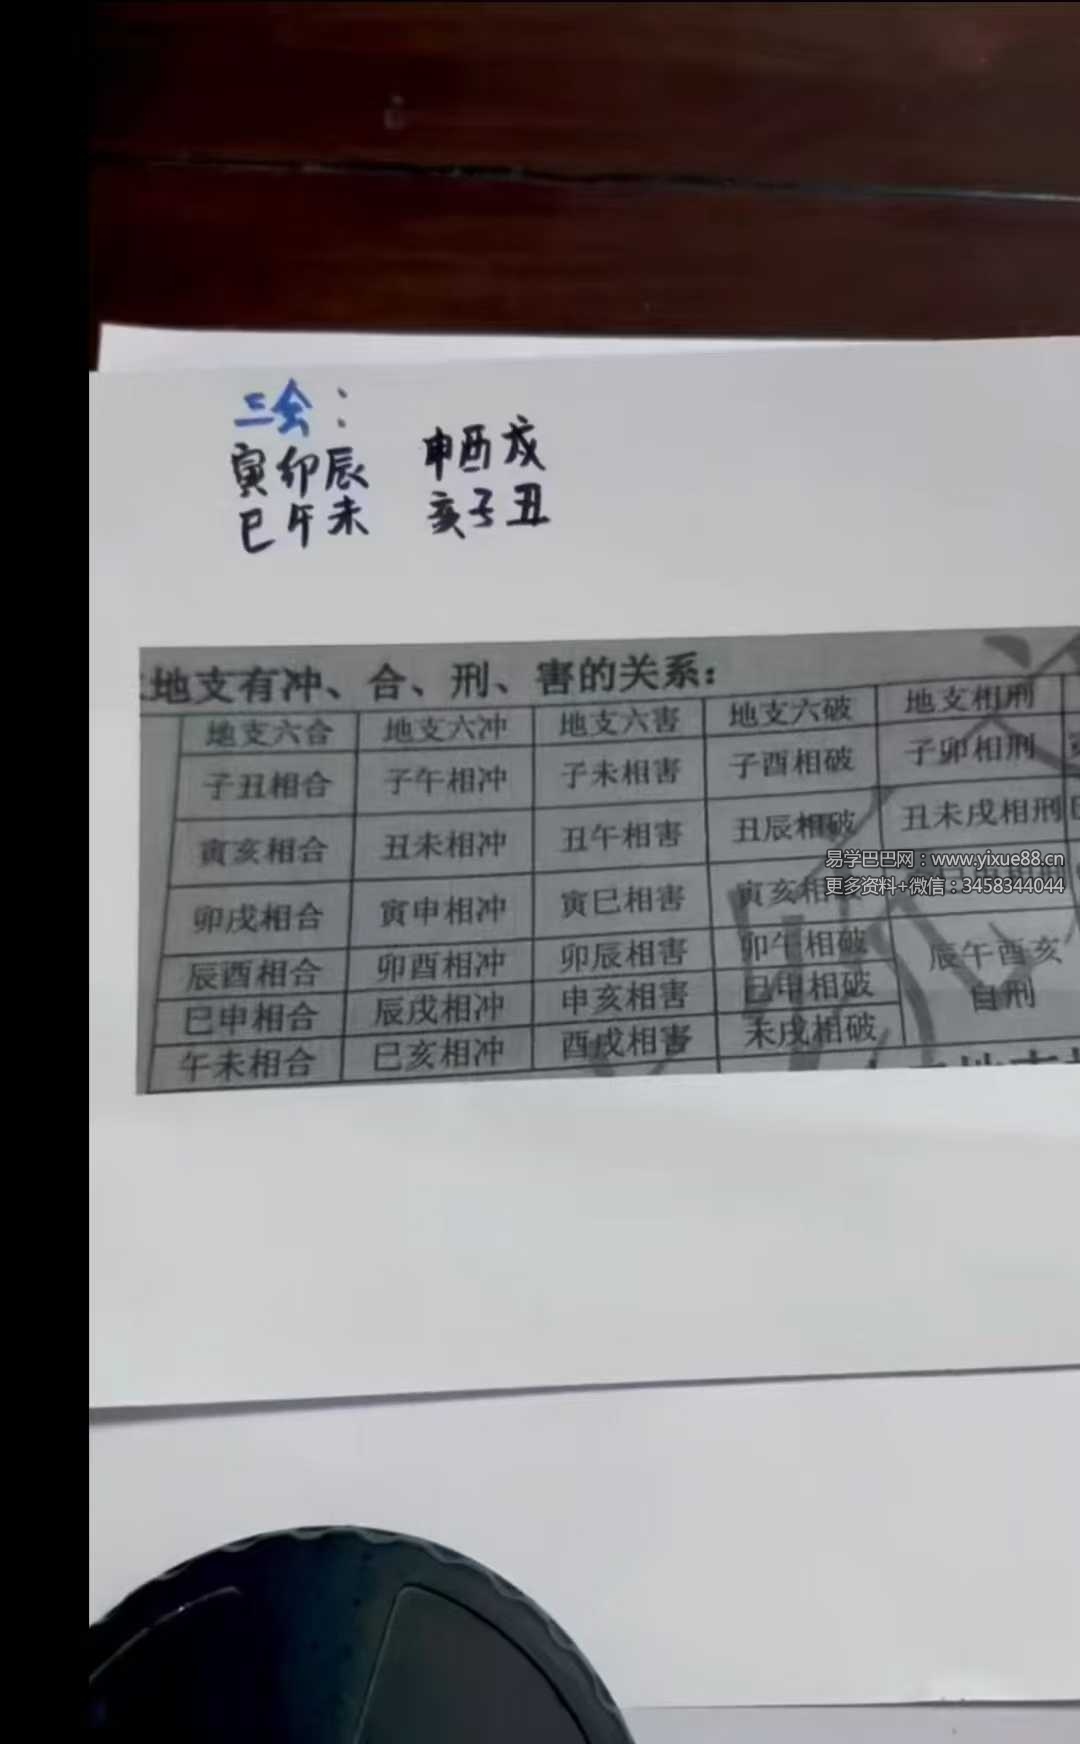 三会：
寅卯辰 申酉戌
巳午未 亥子丑
地支有冲、合、刑、害的关系：
地支六合 地支六冲 地支六害 地支六破 地支相刑
子丑相合 子午相冲 子未相害 子酉相破 子卯相刑
寅亥相合 丑未相冲 丑午相害 丑辰相破 丑未戌相刑
易学巴巴网：www.yixue88.cn
更多资料+微信：3458344044
卯戌相合 寅申相冲 寅巳相害 寅亥相
辰酉相合 卯酉相冲 卯辰相害 卯午相破 辰午酉亥
巳申相合 辰戌相冲 申亥相害 巳申相破 自刑
午未相合 巳亥相冲 酉戌相害 未戌相破